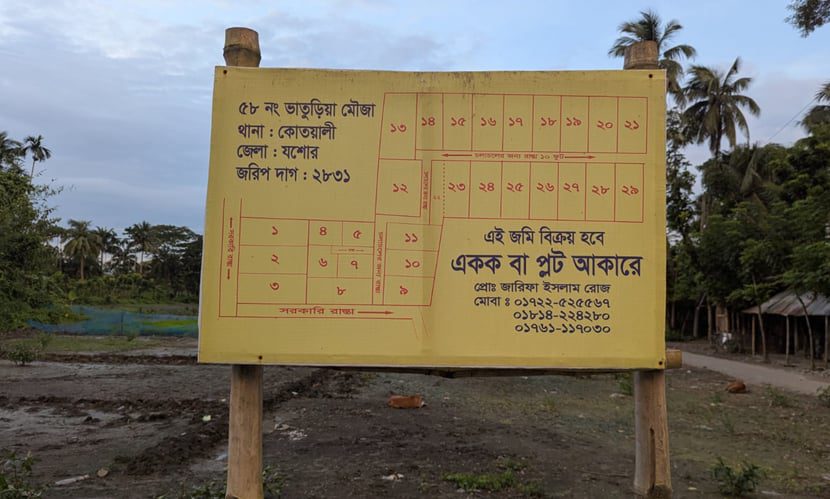 ৫৮ নং ভাতুড়িয়া মৌজা
থানা : কোতয়ালী
জেলা : যশোর
জরিপ দাগ : ২৮৩১
১৩ ১৪ ১৫ ১৬ ১৭ ১৮ ১৯ ২০ ২১
চলাচলের জন্য রাস্তা ১০ ফুট
১২ ২২ ২৩ ২৪ ২৫ ২৬ ২৭ ২৮ ২৯
চলাচলের জন্য রাস্তা
সরকারি রাস্তা
১ ৪ ৫ ১১
২ ৬ ৭ ১০
৩ ৮ ৯
সরকারি রাস্তা
এই জমি বিক্রয় হবে
একক বা প্লট আকারে
প্রোঃ জারিফা ইসলাম রোজ
মোবা : ০১৭২২-৫২৫৫৬৭
০১৮১৪-২২৪২৮০
০১৭৬১-১১৭০৩০